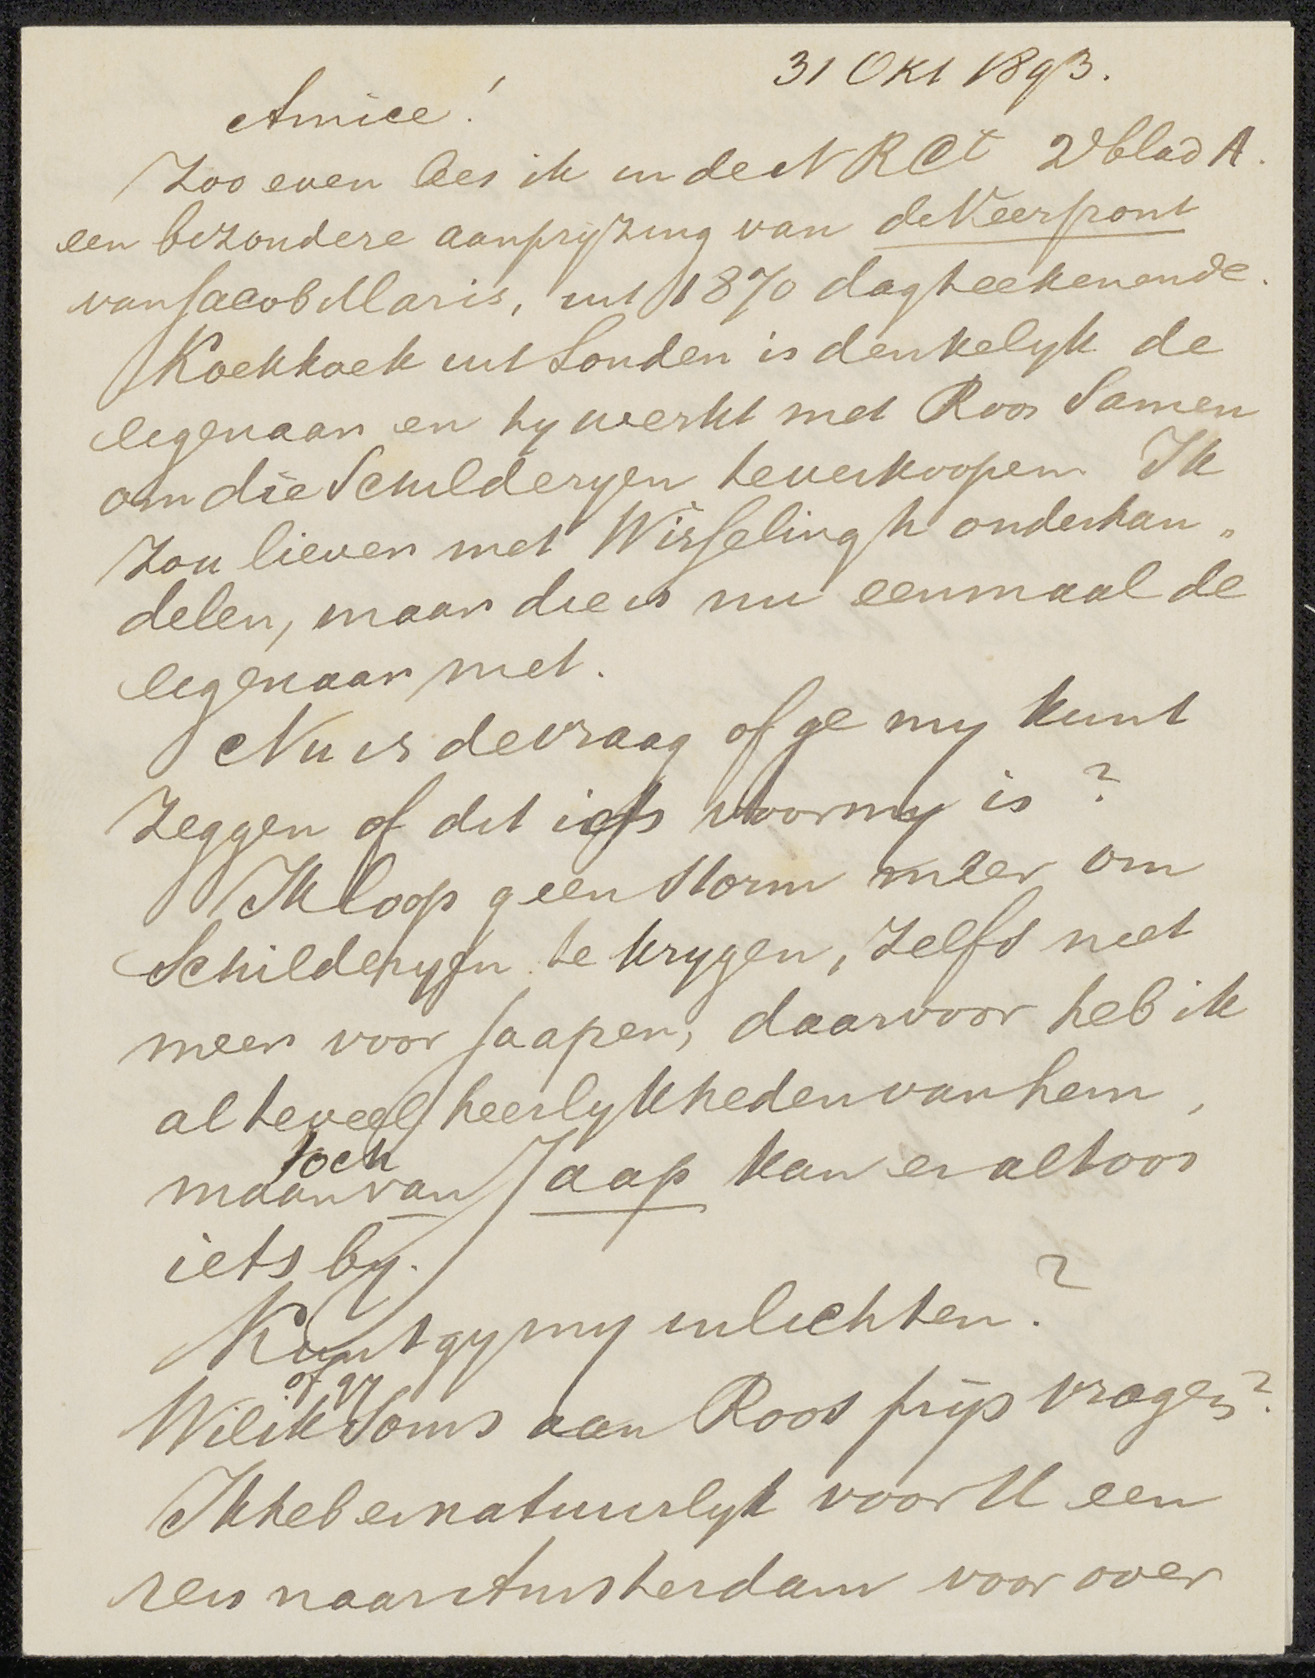 31 Okt 1893.
Amice!
Zoo even lees ik in de N R Ct 2e blad A.
een bezondere aanpryzing van de Veerpont
van Jacob Maris, uit 1870 dagteekenende.
Koekkoek uit Londen is denkelyk de
eigenaar en hy werkt met Roos Samen
om die Schilderyen te verkoopen. Ik
zou liever met Wisselingh onderhan„
delen, maar die is nu eenmaal de
eigenaar niet.
Nu is de vraag of ge my kunt
zeggen of dit iets voor my is?
Ik loop geen storm meer om
Schilderyen te krygen, zelfs niet
meer voor Jaapen, daarvoor heb ik
al te veel heerlykheden van hem,
toch
maar van Jaap kan er altoos
iets by.
Kunt gy my inlichten?
of gy
Wil ik Soms aan Roos prijs vragen?
Ik heb er natuurlyk voor U een
reis naar Amsterdam voor over